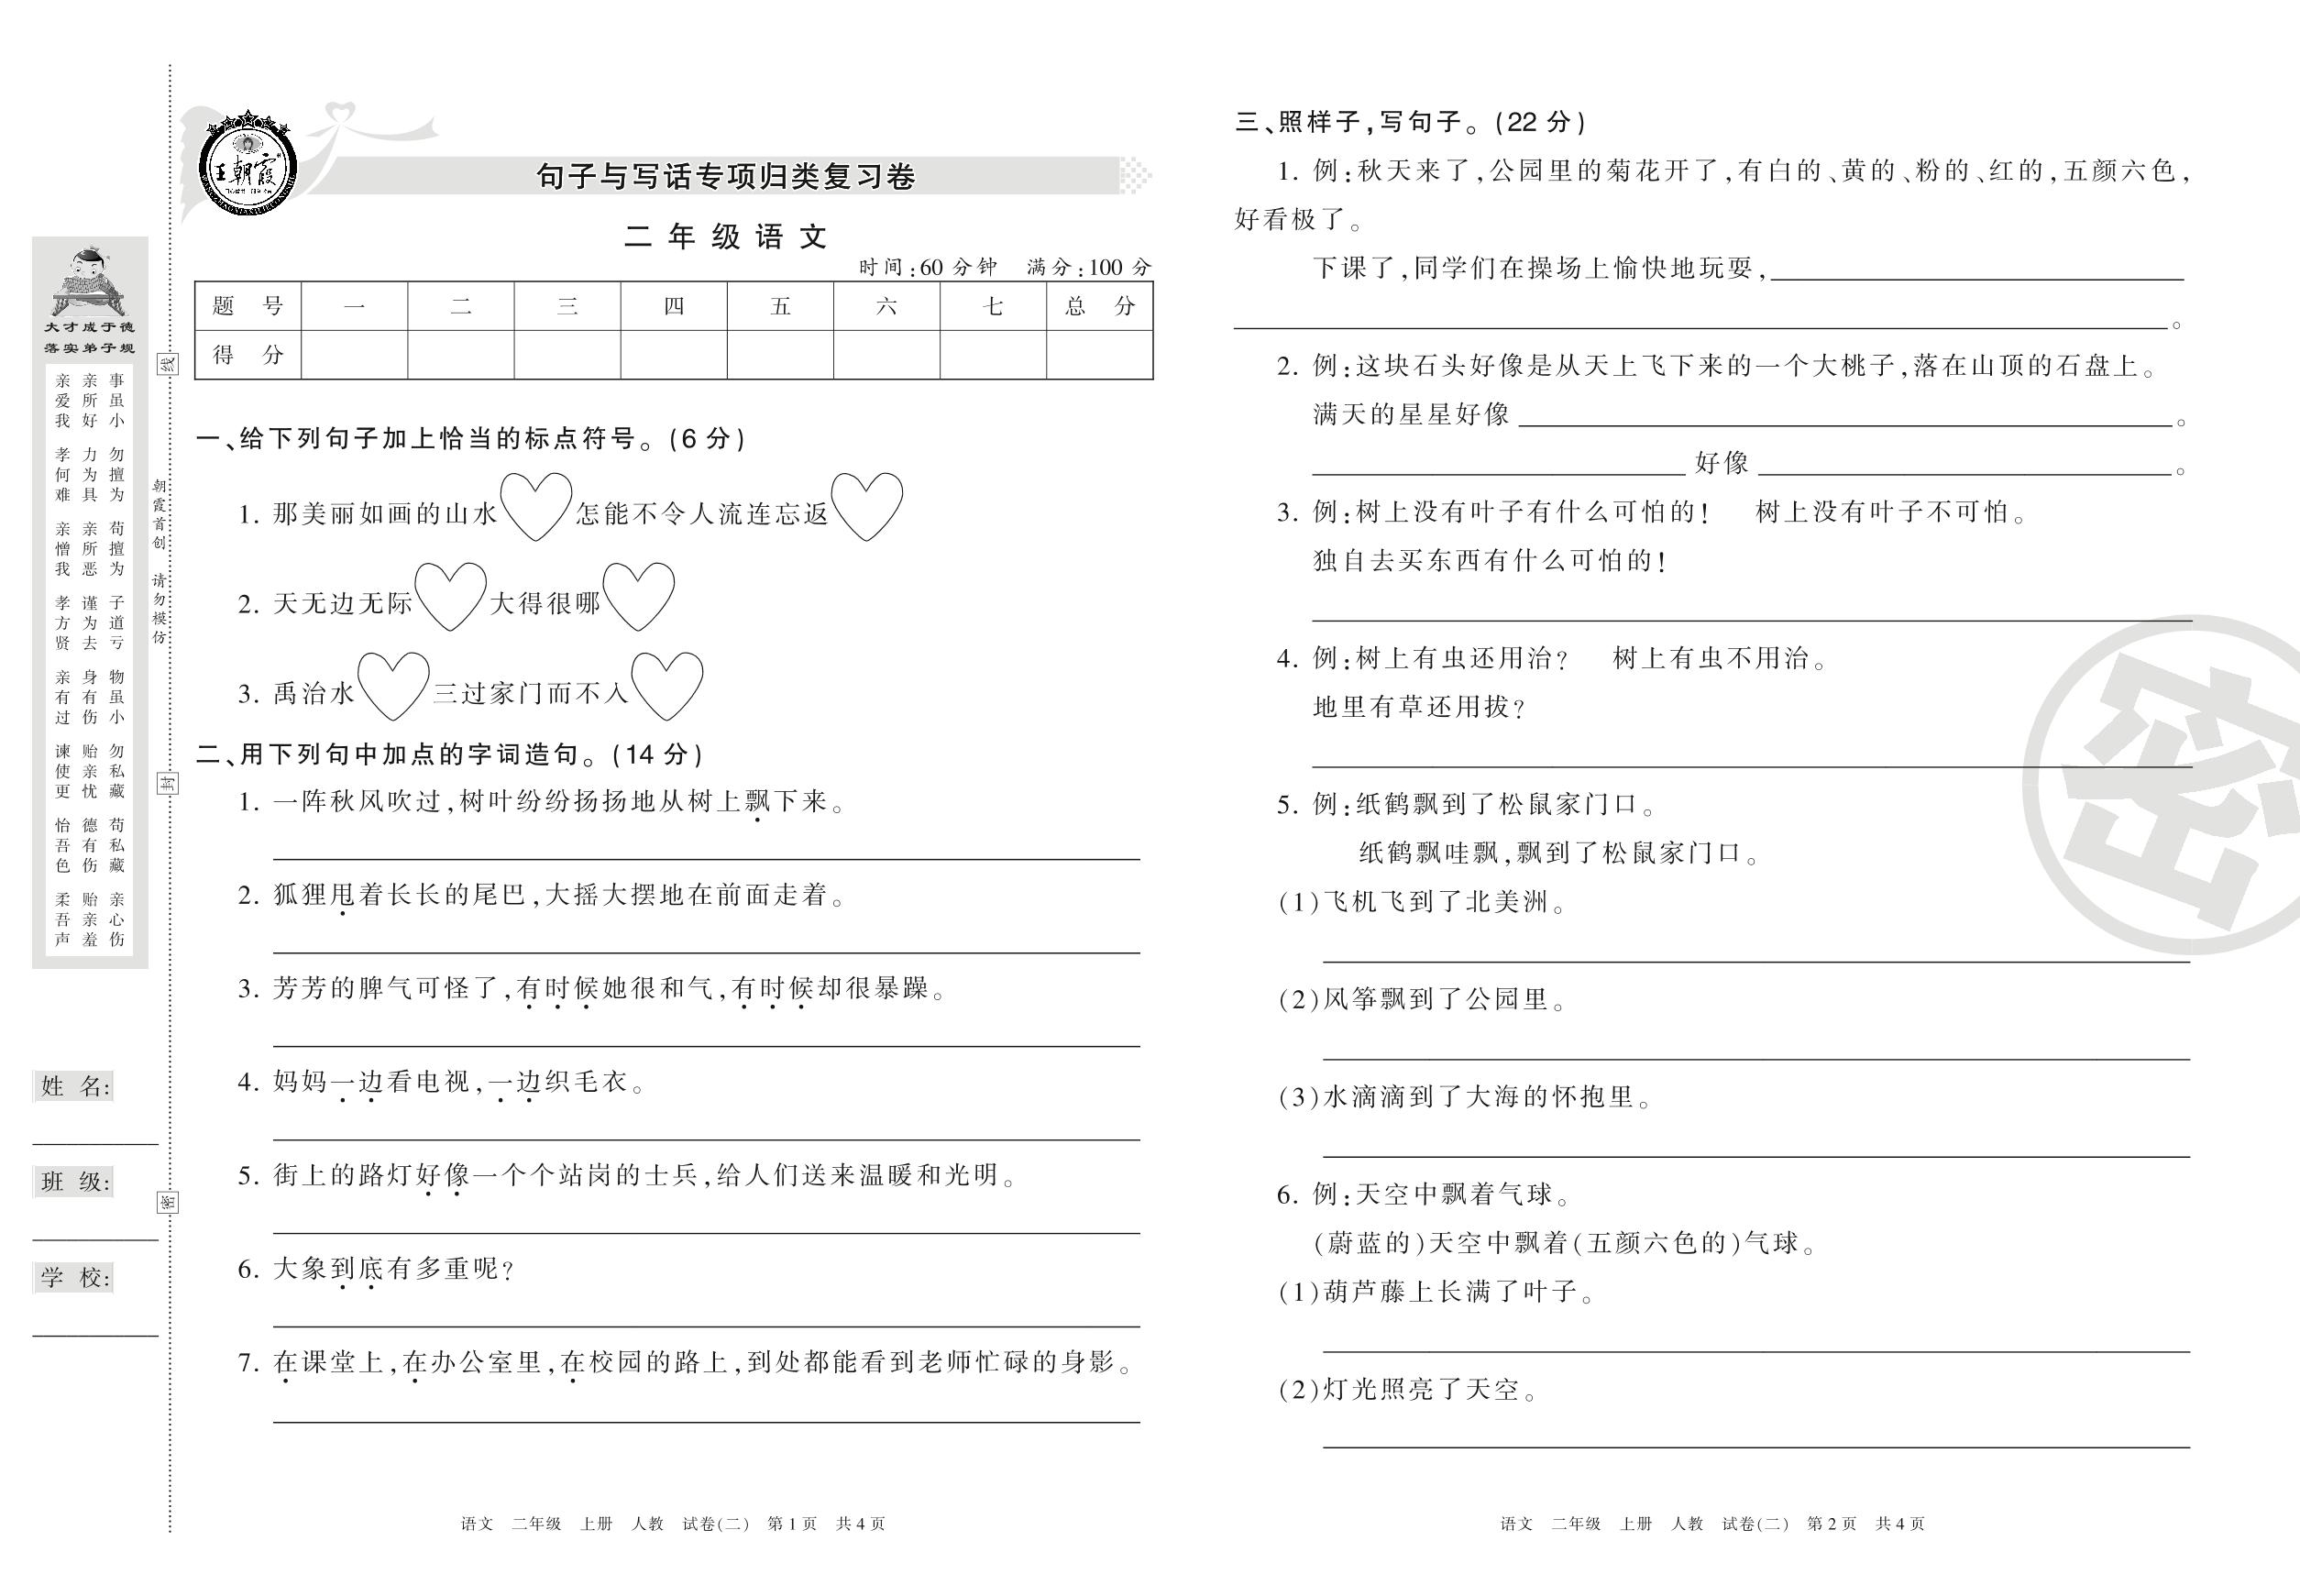 王朝霞
句子与写话专项归类复习卷
二年级语文
时间:60分钟 满分:100分
题 号 一 二 三 四 五 六 七 总 分
得 分
一、给下列句子加上恰当的标点符号。(6分)
1. 那美丽如画的山水 怎能不令人流连忘返
2. 天无边无际 大得很哪
3. 禹治水 三过家门而不入
二、用下列句中加点的字词造句。(14分)
1. 一阵秋风吹过,树叶纷纷扬扬地从树上飘下来。
2. 狐狸甩着长长的尾巴,大摇大摆地在前面走着。
3. 芳芳的脾气可怪了,有时候她很和气,有时候却很暴躁。
4. 妈妈一边看电视,一边织毛衣。
5. 街上的路灯好像一个个站岗的士兵,给人们送来温暖和光明。
6. 大象到底有多重呢?
7. 在课堂上,在办公室里,在校园的路上,到处都能看到老师忙碌的身影。
语文 二年级 上册 人教 试卷(二) 第1页 共4页
三、照样子,写句子。(22分)
1. 例:秋天来了,公园里的菊花开了,有白的、黄的、粉的、红的,五颜六色,
好看极了。
下课了,同学们在操场上愉快地玩耍,
。
2. 例:这块石头好像是从天上飞下来的一个大桃子,落在山顶的石盘上。
满天的星星好像 。
好像 。
3. 例:树上没有叶子有什么可怕的! 树上没有叶子不可怕。
独自去买东西有什么可怕的!
4. 例:树上有虫还用治? 树上有虫不用治。
地里有草还用拔?
5. 例:纸鹤飘到了松鼠家门口。
纸鹤飘哇飘,飘到了松鼠家门口。
(1)飞机飞到了北美洲。
(2)风筝飘到了公园里。
(3)水滴滴到了大海的怀抱里。
6. 例:天空中飘着气球。
(蔚蓝的)天空中飘着(五颜六色的)气球。
(1)葫芦藤上长满了叶子。
(2)灯光照亮了天空。
语文 二年级 上册 人教 试卷(二) 第2页 共4页
密
大才成于德
落实弟子规
事虽小 勿擅为 苟擅为 子道亏 物虽小 勿私藏 苟私藏 亲心伤
亲所好 力为具 亲所恶 谨为去 身有伤 贻亲忧 德有伤 贻亲羞
亲爱我 孝何难 亲憎我 孝方贤 亲有过 谏使更 怡吾色 柔吾声
朝霞首创 请勿模仿
线
封
密
姓 名:
班 级:
学 校: